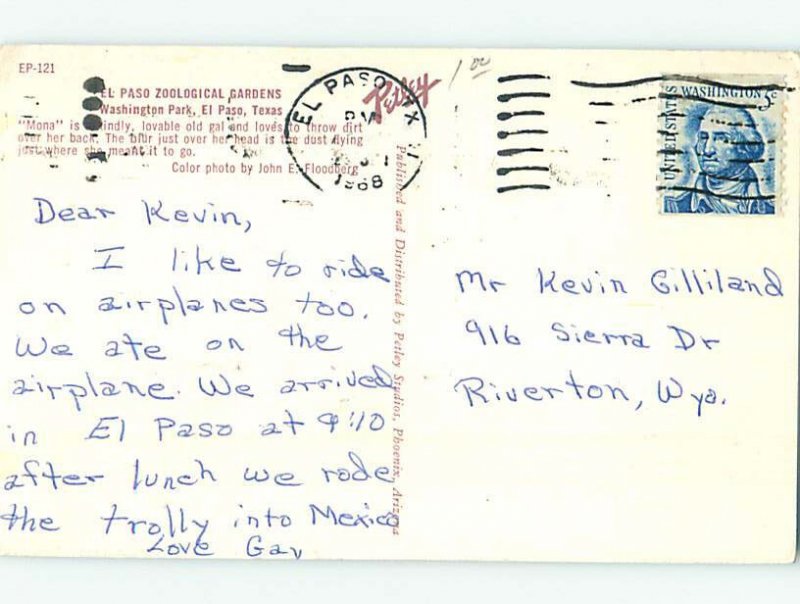 EP-121
EL PASO ZOOLOGICAL GARDENS
Washington Park, El Paso, Texas
"Mona" is kindly, lovable old gal and loves to throw dirt
over her back. The blur just over her head is the dust flying
just where she meant it to go.
Color photo by John E. Floodberg
Petley
1 00
EL PASO, TX
PM
1968
UNITED STATES
WASHINGTON 5c
Dear Kevin,
I like to ride
on airplanes too.
We ate on the
airplane. We arrived
in El Paso at 9:10
after lunch we rode
the trolly into Mexico
Love Gav
Published and Distributed by Petley Studios, Phoenix, Arizona
Mr Kevin Gilliland
916 Sierra Dr
Riverton, Wyo.